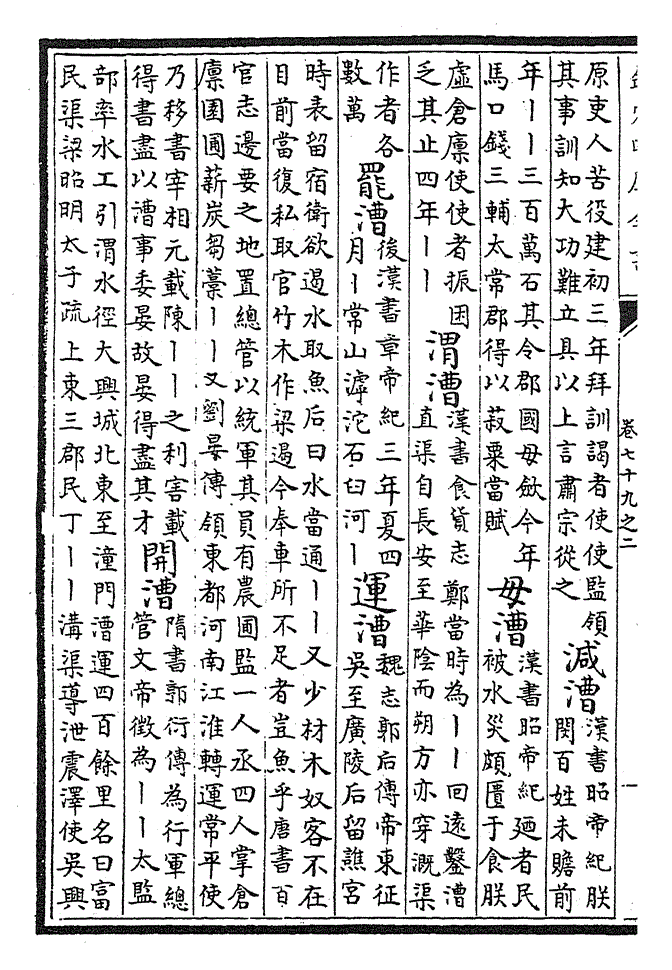 卷七十九之二
一
原吏人苦役建初三年拜訓謁者使使監領
其事訓知大功難立具以上言肅宗從之
減漕
漢書昭帝紀朕
閔百姓未贍前
年丨丨三百萬石其令郡國毋斂今年
馬口錢三輔太常郡得以菽粟當賦
毋漕
漢書昭帝紀廼者民
被水災頗匱于食朕
虛倉廩使使者振困
乏其止四年丨丨
渭漕
漢書食貨志鄭當時為丨丨回遠鑿漕
直渠自長安至華陰而朔方亦穿溉渠
作者各
數萬
罷漕
後漢書章帝紀三年夏四
月丨常山滹沱石臼河丨
運漕
魏志郭后傳帝東征
吳至廣陵后留譙宮
時表留宿衛欲遏水取魚后曰水當通丨丨又少材木奴客不在
目前當復私取官竹木作梁遏今奉車所不足者豈魚乎唐書百
官志邊要之地置總管以統軍其員有農圃監一人丞四人掌倉
廩園圃薪炭芻藁丨丨又劉晏傳領東都河南江淮轉運常平使
乃移書宰相元載陳丨丨之利害載
得書盡以漕事委晏故晏得盡其才
開漕
隋書郭衍傳為行軍總
管文帝徵為丨丨太監
部率水工引渭水徑大興城北東至潼門漕運四百餘里名曰富
民渠梁昭明太子疏上東三郡民丁丨丨溝渠導泄震澤使吳興